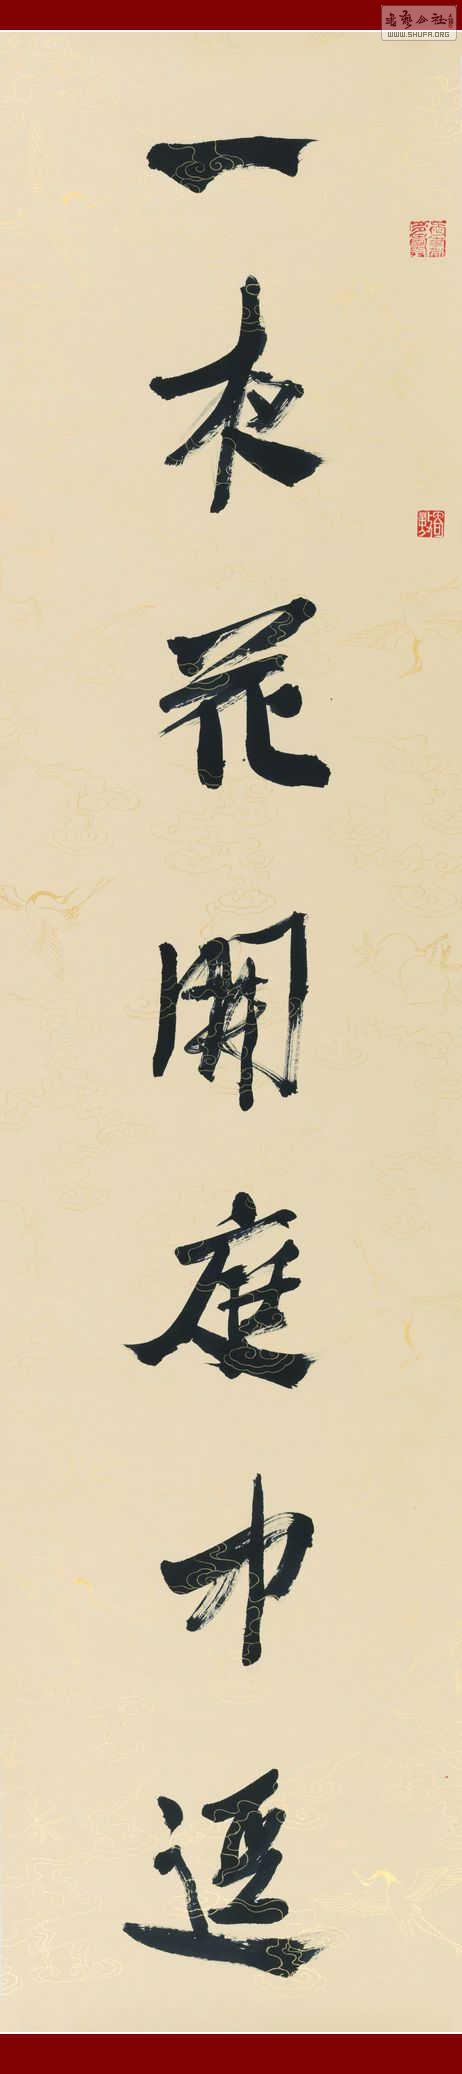 書藝公社
WWW.SHUFA.ORG
一夜花開庭中逕